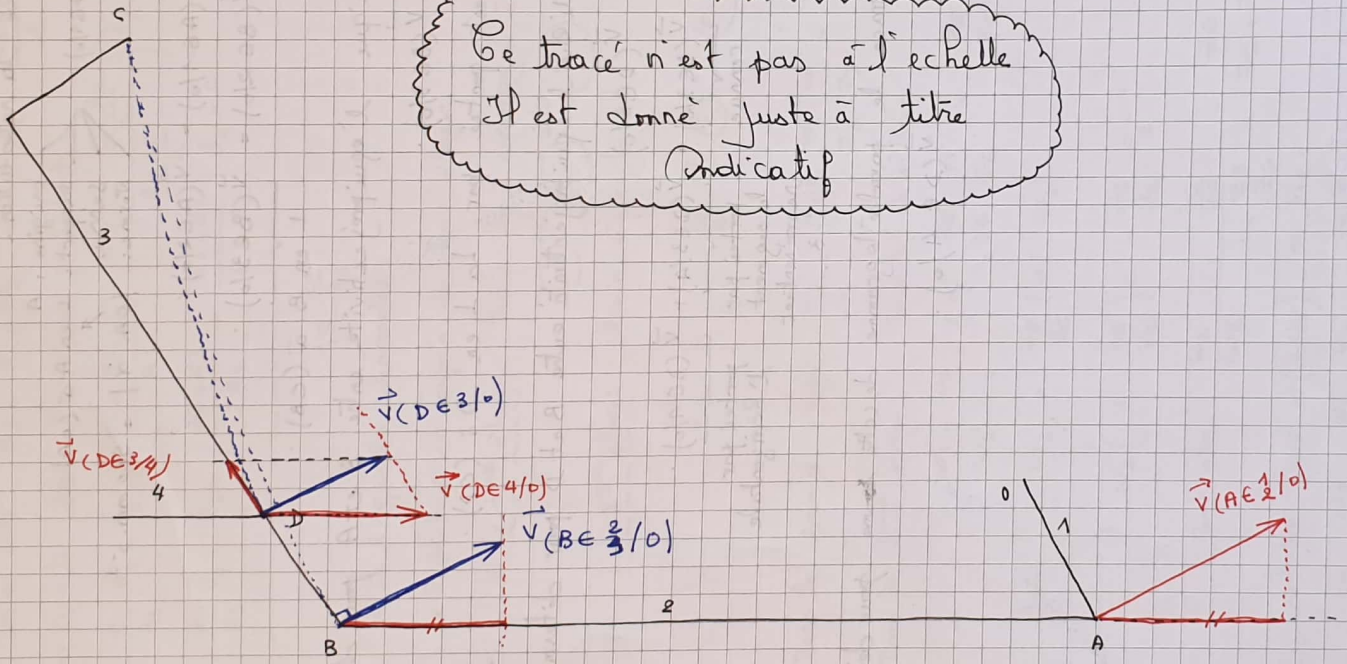 C
Ce tracé n'est pas à l'echelle
Il est donné juste à titre
indicatif
3
V(D∈3/0)
V(D∈3/4)
4
V(D∈4/0)
D
V(B∈2/3/0)
0
1
V(A∈1/2/0)
2
B
A